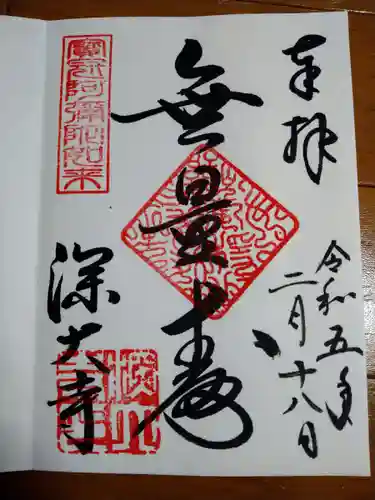 奉拝
令和五年
二月十八日
無量壽
寳冠阿彌陀如来
深大寺